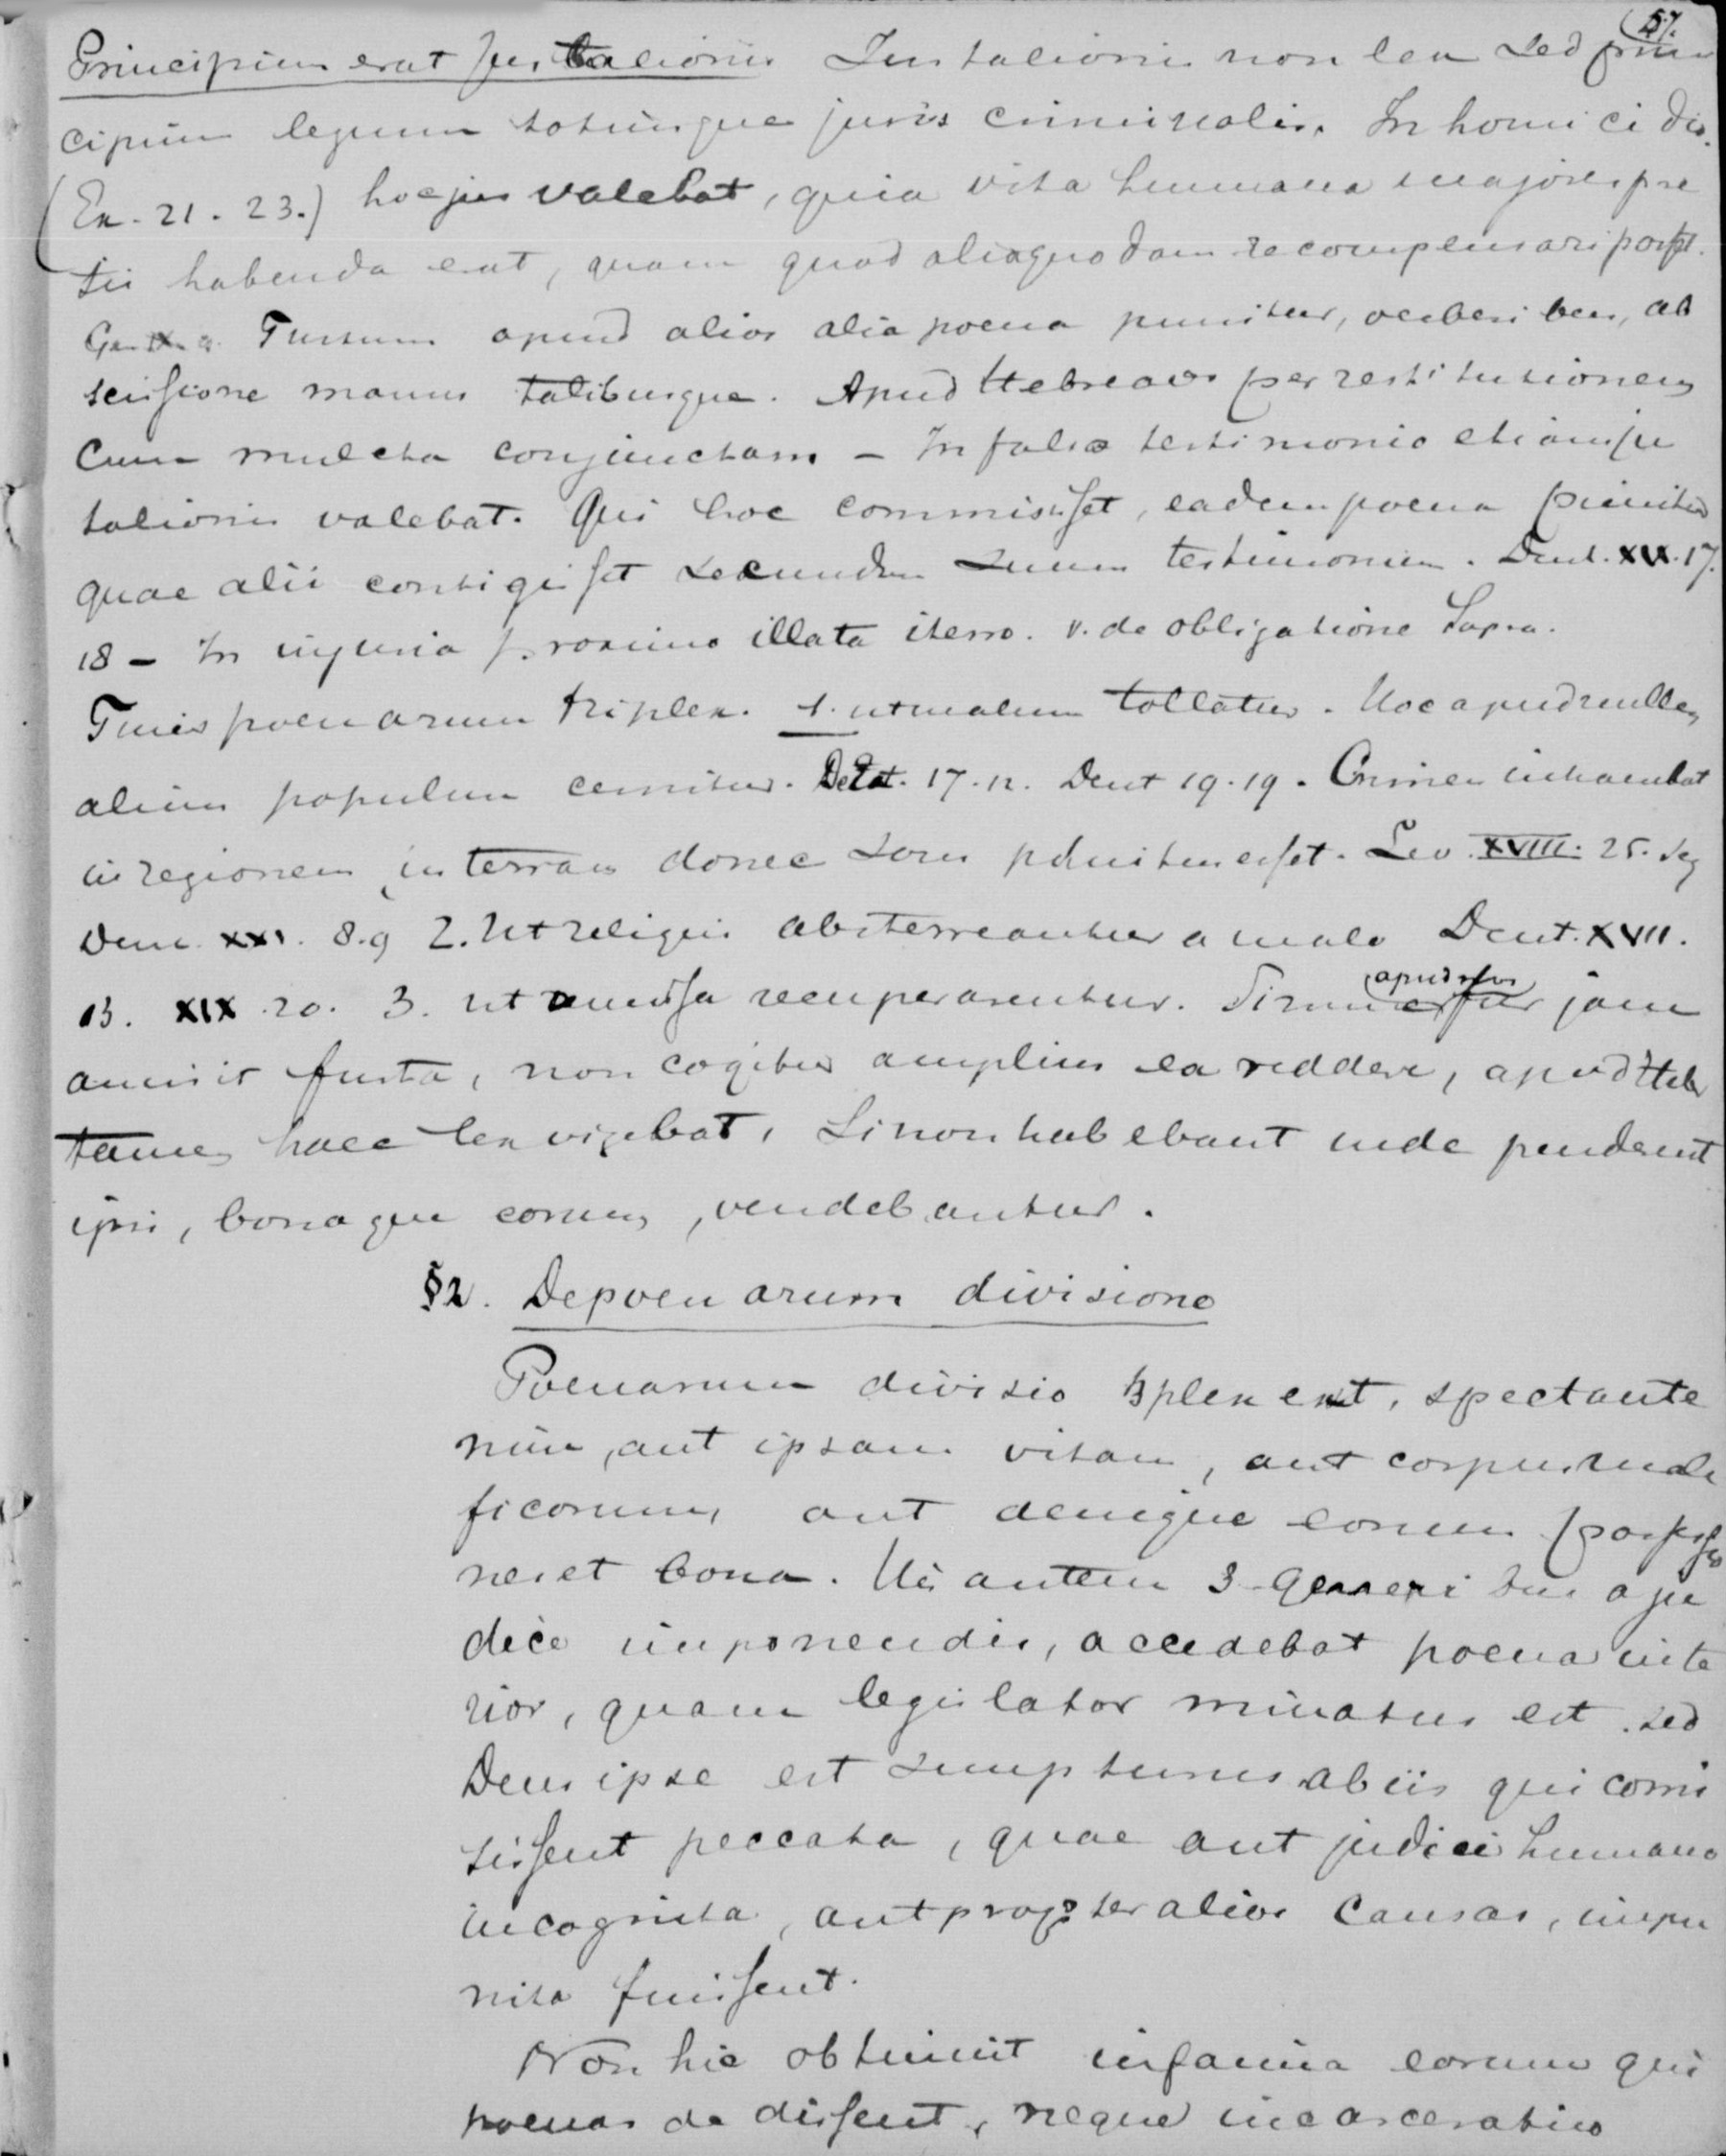 57.
Principium erat Jus talionis Jus talionis non lex sed prin
cipium legum totiusque juris criminalis. In homicidio
(Ex. 21. 23.) hoc jus valebat, quia vita humana majoris pre
tii habenda erat, quam quod alio quodam recompensari posset.
Furtum apud alios alia poena punitur, verberibus, ab
scissione manus talibusque. Apud Hebraeos per restitutionem
cum mulcta conjunctam – In falso testimonio etiam jus
talionis valebat. Qui hoc commisisset, eadem poena punitur
quae alii contigisset secundum suum testimonium. Deut. XIX. 17.
18 – In injuria proximo illata item. v. de obligatione Supra.
Finis poenarum triplex. 1. ut malum tollatur. Hoc apud nullum
alium populum cernitur. Deut. 17. 12. Deut 19. 19. Crimen inhaerebat
in regionem in terram donec sons punitus esset. Lev. XVIII. 25. seq
Deut. XXI. 8. 9 2. Ut reliqui absterreantur a malo Deut. XVII.
13. XIX 20. 3. ut amissa recuperarentur. Si fur jam
apud nos
amisit furta, non cogitur amplius ea reddere, apud Heb
tamen haec lex vigebat, Si non habebant unde penderent
ipsi, bonaque eorum, vendebantur.
§2. De poenarum divisione
Poenarum divisio 3plex est, spectant e
nim, aut ipsam vitam, aut corpus male
ficorum, aut denique eorum possessio
nes et bona. His autem 3 generibus a ju
dice imponendis, accedebat poena inte
rior, quam legislator minatus est. sed
Deus ipse est sumpturus ab iis qui comi
sissent peccata, quae aut judici humano
incognita, aut propter alias causas, impu
nita fuissent.
Non hic obtinuit infamia eorum qui
poenas dedissent, neque incarceratio